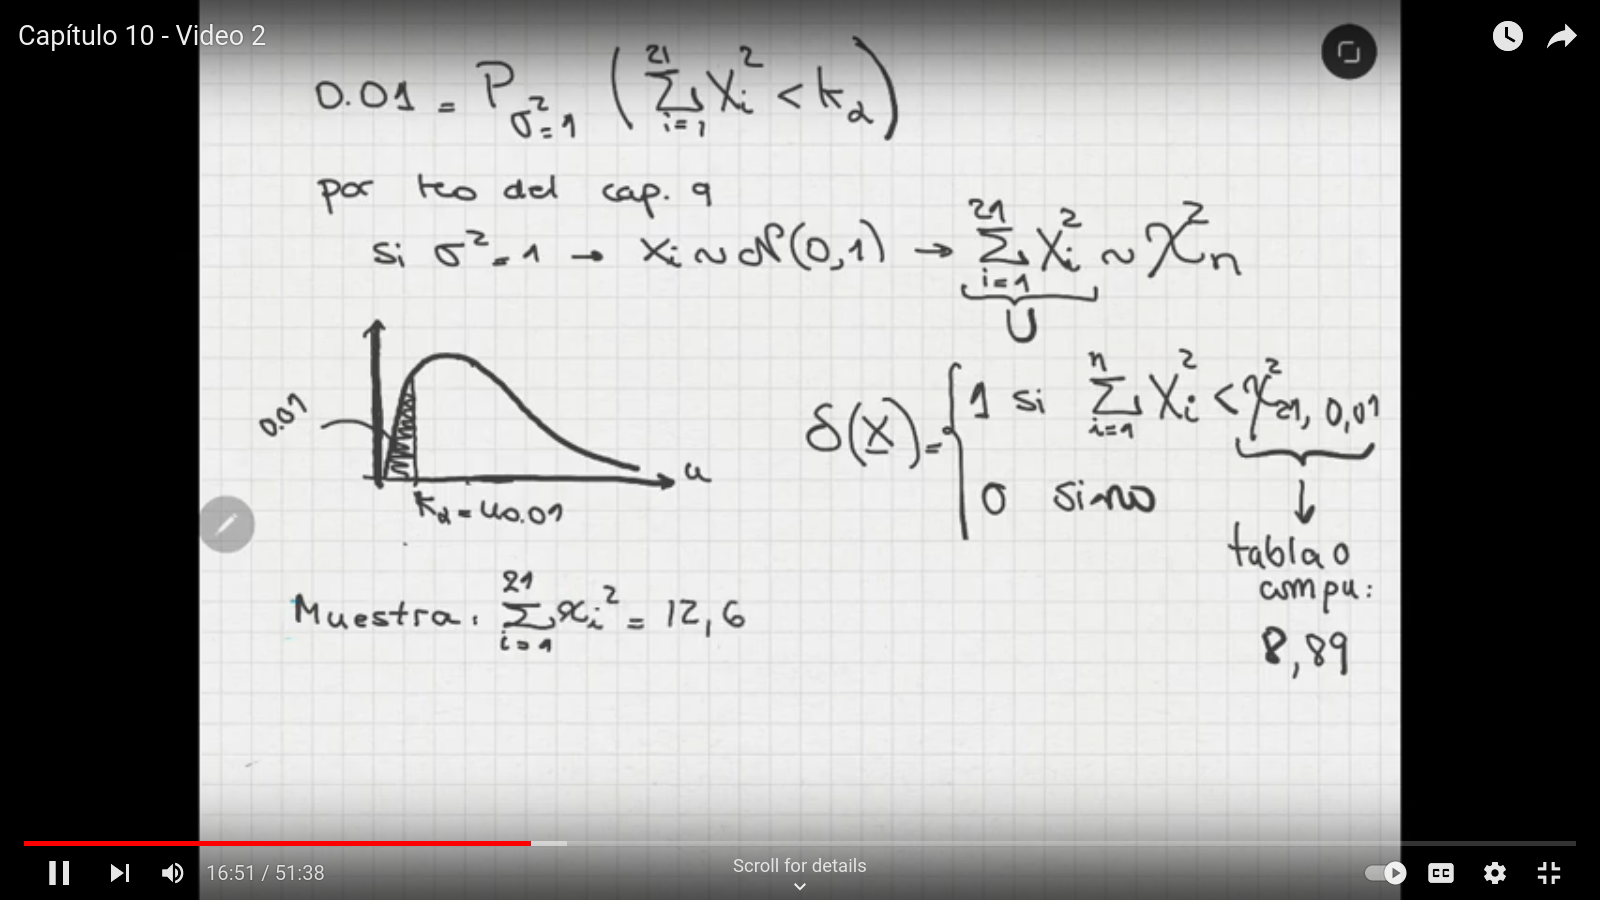 Capítulo 10 - Video 2
0.01 = P_{σ²=1} ( Σ_{i=1}^{21} Xi² < kα )
por teo del cap. 9
si σ² = 1 → Xi ~ N(0,1) → Σ_{i=1}^{21} Xi² ~ χ²_n
U
0.01
u
kα = u0.01
δ(X) = { 1 si Σ_{i=1}^{n} Xi² < χ²_{21, 0,01}
0 sino
tabla o
compu:
8,89
Muestra: Σ_{i=1}^{21} xi² = 12,6
Scroll for details
16:51 / 51:38
CC